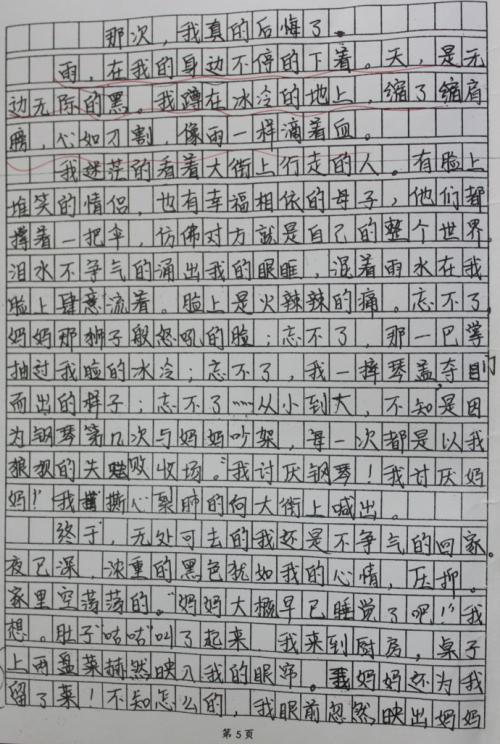 那次，我真的后悔了。
雨，在我的身边不停的下着。天，是无
边无际的黑。我蹲在冰冷的地上，缩了缩肩
膀，心如刀割，像雨一样滴着血。
我迷茫的看着大街上行走的人。有脸上
堆笑的情侣，也有幸福相依的母子，他们都
撑着一把伞，仿佛对方就是自己的整个世界。
泪水不争气的涌出我的眼眶，混着雨水在我
脸上肆意流着。脸上是火辣辣的痛。忘不了，
妈妈那狮子般怒吼的脸；忘不了，那一巴掌
抽过我脸的冰冷；忘不了，我一摔琴盖，夺门
而出的样子；忘不了……从小到大，不知是因
为钢琴第几次与妈妈吵架，每一次都是以我
狼狈的失败收场。“我讨厌钢琴！我讨厌妈
妈！”我撕心裂肺的向大街上喊出。
终于，无处可去的我还是不争气的回家。
夜已深，浓重的黑色犹如我的心情，压抑。
家里空荡荡的。“妈妈大概早已睡觉了吧！”我
想。肚子“咕咕”叫了起来，我来到厨房，桌子
上两盘菜赫然映入我的眼帘。妈妈还为我
留了菜！不知怎么的，我眼前忽然映出妈妈
第5页